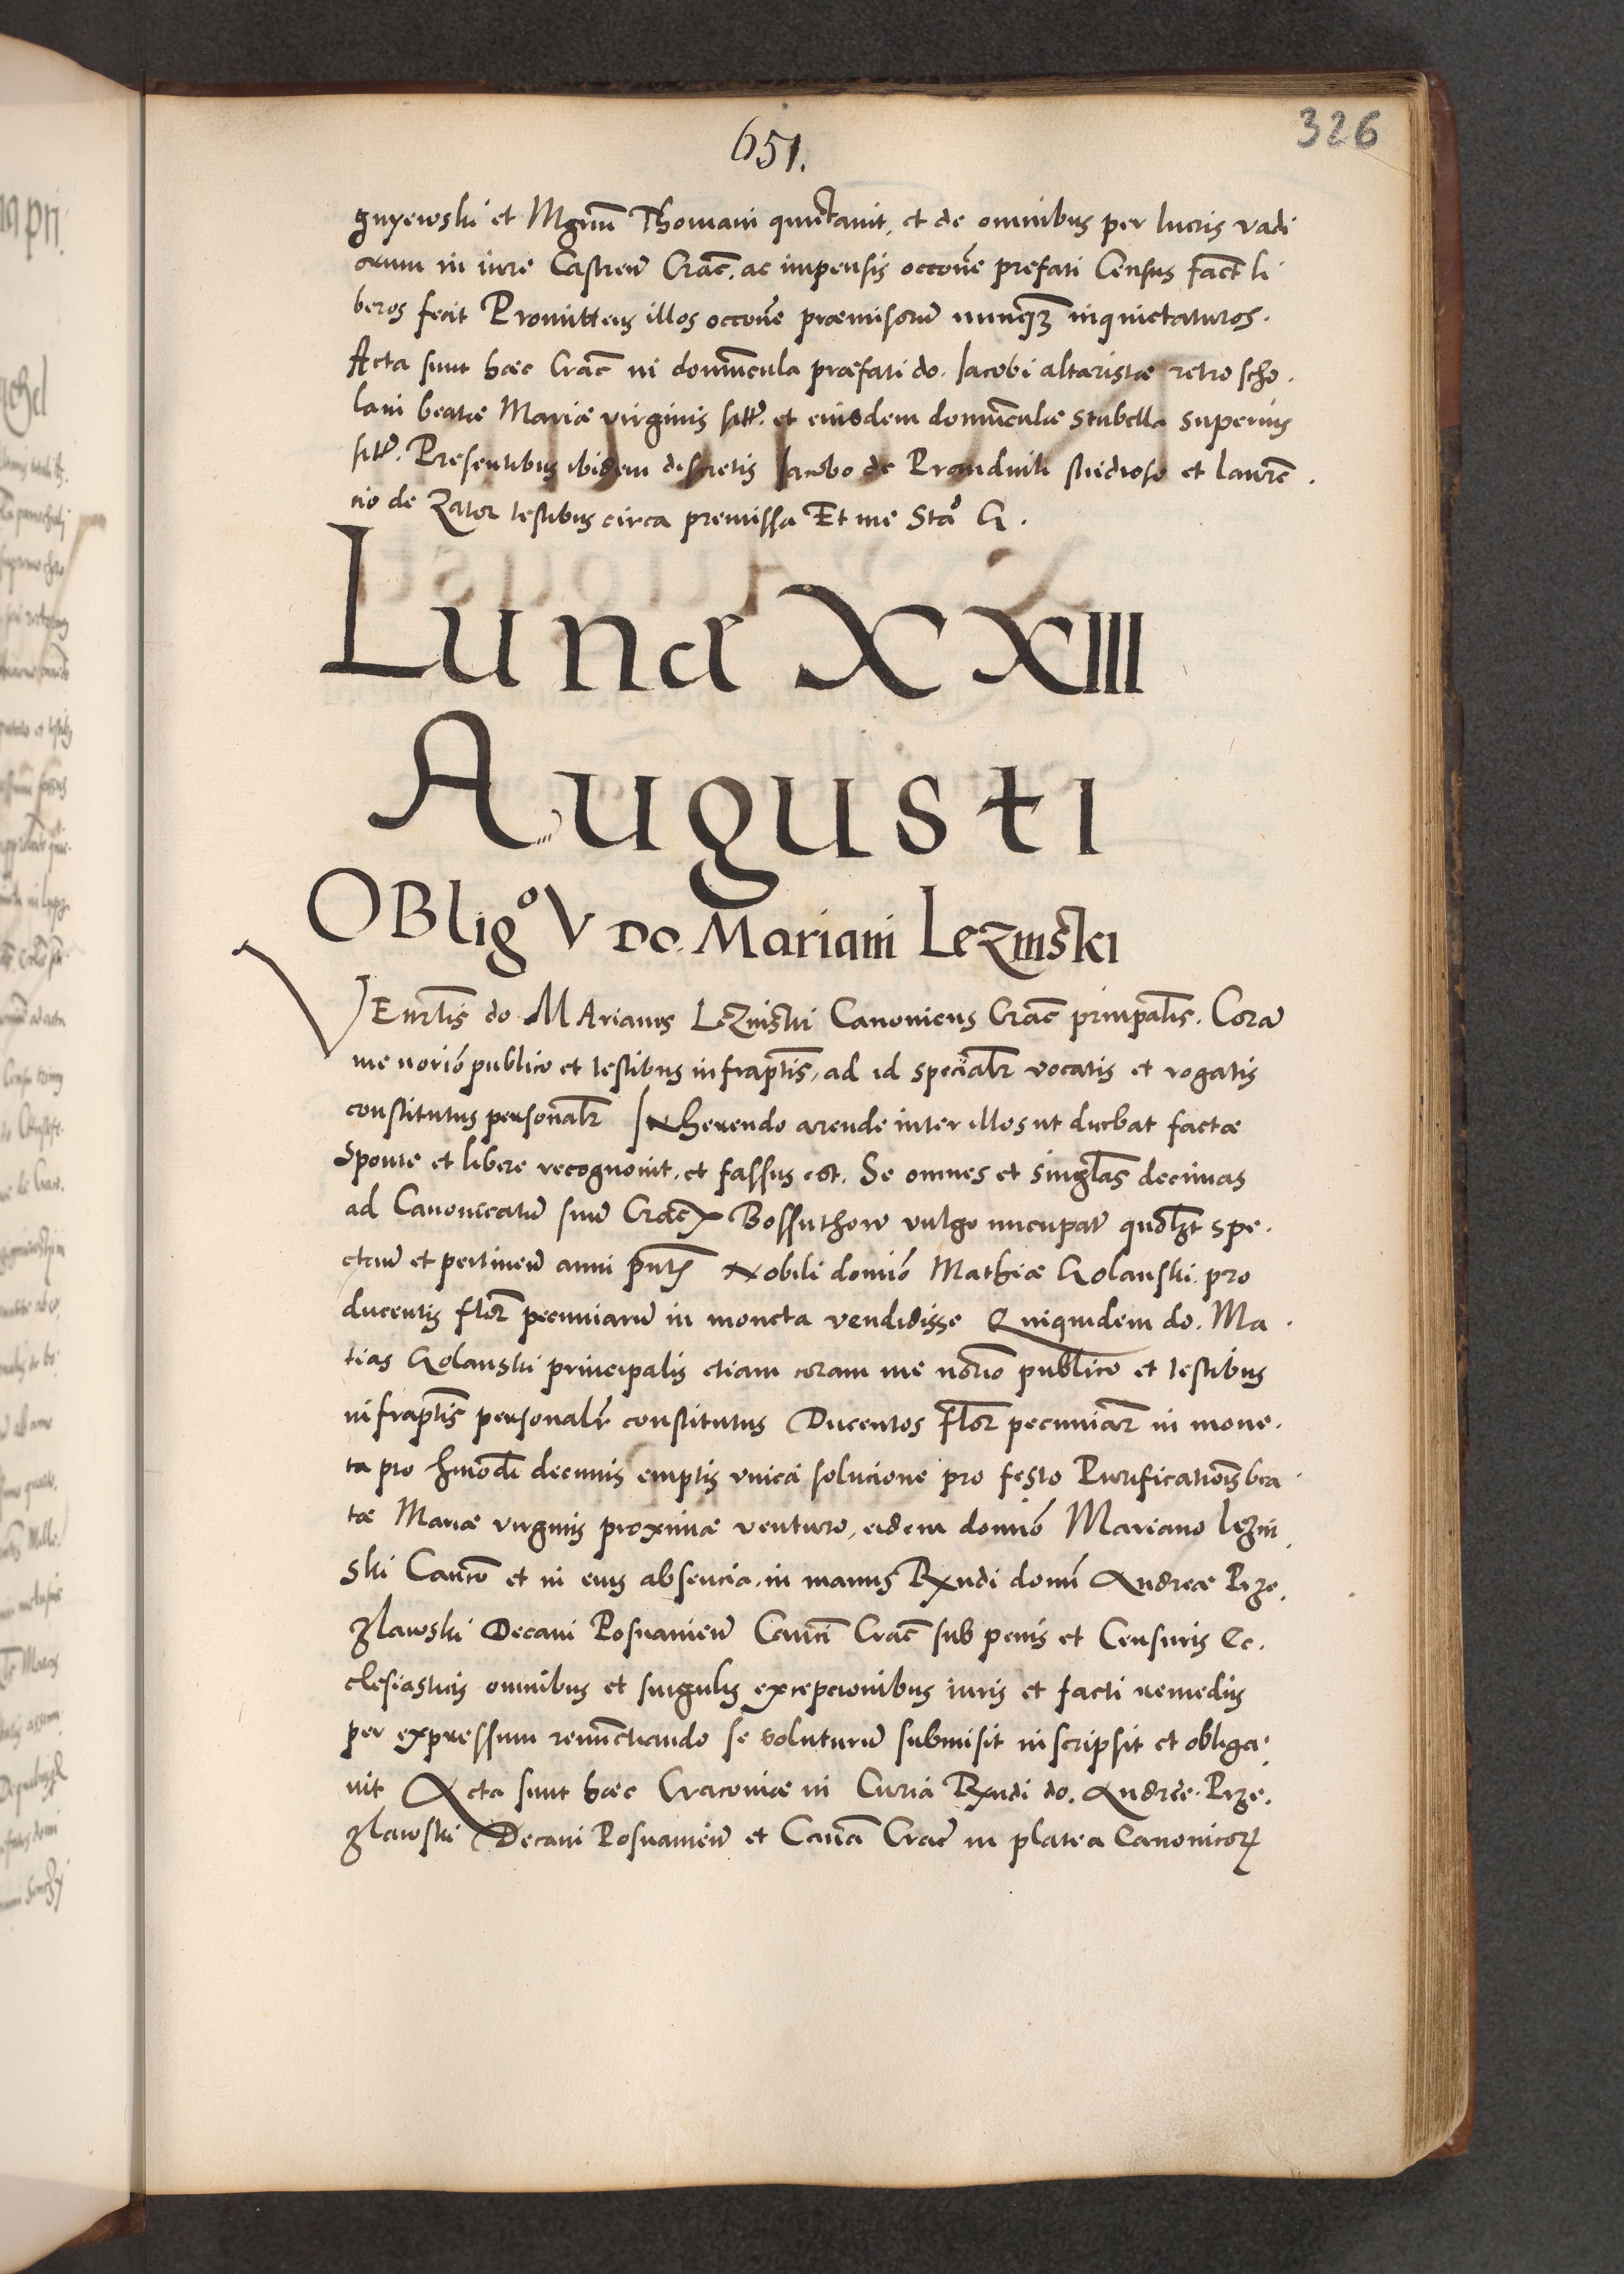 651.
326
gnyewski et Mgnm̄ Thomam quittavit, et de omnibus per lucris vadi
orum in iure Castren̄ Crac̄. ac impensis occone prefati Census fact̄ li
beros fecit Promittens illos occone præmisorum̄ nunqꝫ inquietaturos.
Acta sunt hæc Crac̄ in domuncula præfati do. Jacobi altaristæ retro scho.
lam beatæ Mariæ virginis sitt̄. et eiusdem domunculæ stubella superius
sitt̄. Presentibus ibidem discretis Jacobo de studioso et Lauren̄
cio de Zator testibus circa premissa Et me Sta͛ G.
Lunæ XXIII
Augusti
OBligͦ V Do. Mariani Lezinski
VEnrlis do MArianus LeZinski Canonicus Crac̄ prinpalis. Cora
me norio publico et testibus infraptis, ad id specialr vocatis et rogatis
constitutus personalr INherendo arende inter illos ut dicebat factæ
Sponte et libere recognovit, et fassus est. Se omnes et singlas decimas
ad Canonicatū suū Crac̄ Bossuthow vulgo nucupat̄ quolꝫt spe.
ctan̄ et pertinen̄ anni pn̄tis Nobili domio Mathiæ Golanski pro
ducentis flor̄ pecuniarū in moneta vendidisse Quiquidem do. Ma.
tias Golanski principalis etiam coram me norio publico et testibus
infraptis personalr constitutus Ducentos Flor̄ pecuniar̄ in mone.
ta pro hmodi decimis emptis unica solucione pro festo Purificationis bea.
tæ Mariæ virginis proximæ venturo, eidem domio Mariano Lezin.
ski Canco et in eius absencia, in manus Rxndi domi Andreæ Prze.
zlawski Decani Posnanien̄ Canci Crac̄ sub penis et Censuris Ec.
clesiasticis omnibus et singulis excepcionibus iuris et facti remediis
per expressum renunctiando se soluturū submisit inscripsit et obliga.
vit Acta sunt hæc Cracoviæ in Curia Rxndi do. Andreæ Prze.
zlawski Decani Posnanien̄ et Canci Crac̄ in platea Canonicorꝝ